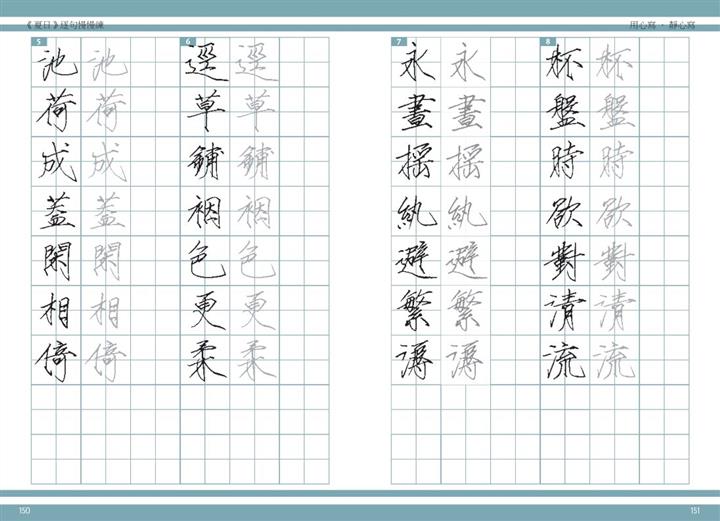 《夏日》逐句慢慢練
用心寫 · 靜心寫
5
池荷成蓋閑相倚
池荷成蓋閑相倚
6
逕草鋪裀色更柔
逕草鋪裀色更柔
7
永晝搖紈避繁溽
永晝搖紈避繁溽
8
杯盤時欲對清流
杯盤時欲對清流
150
151